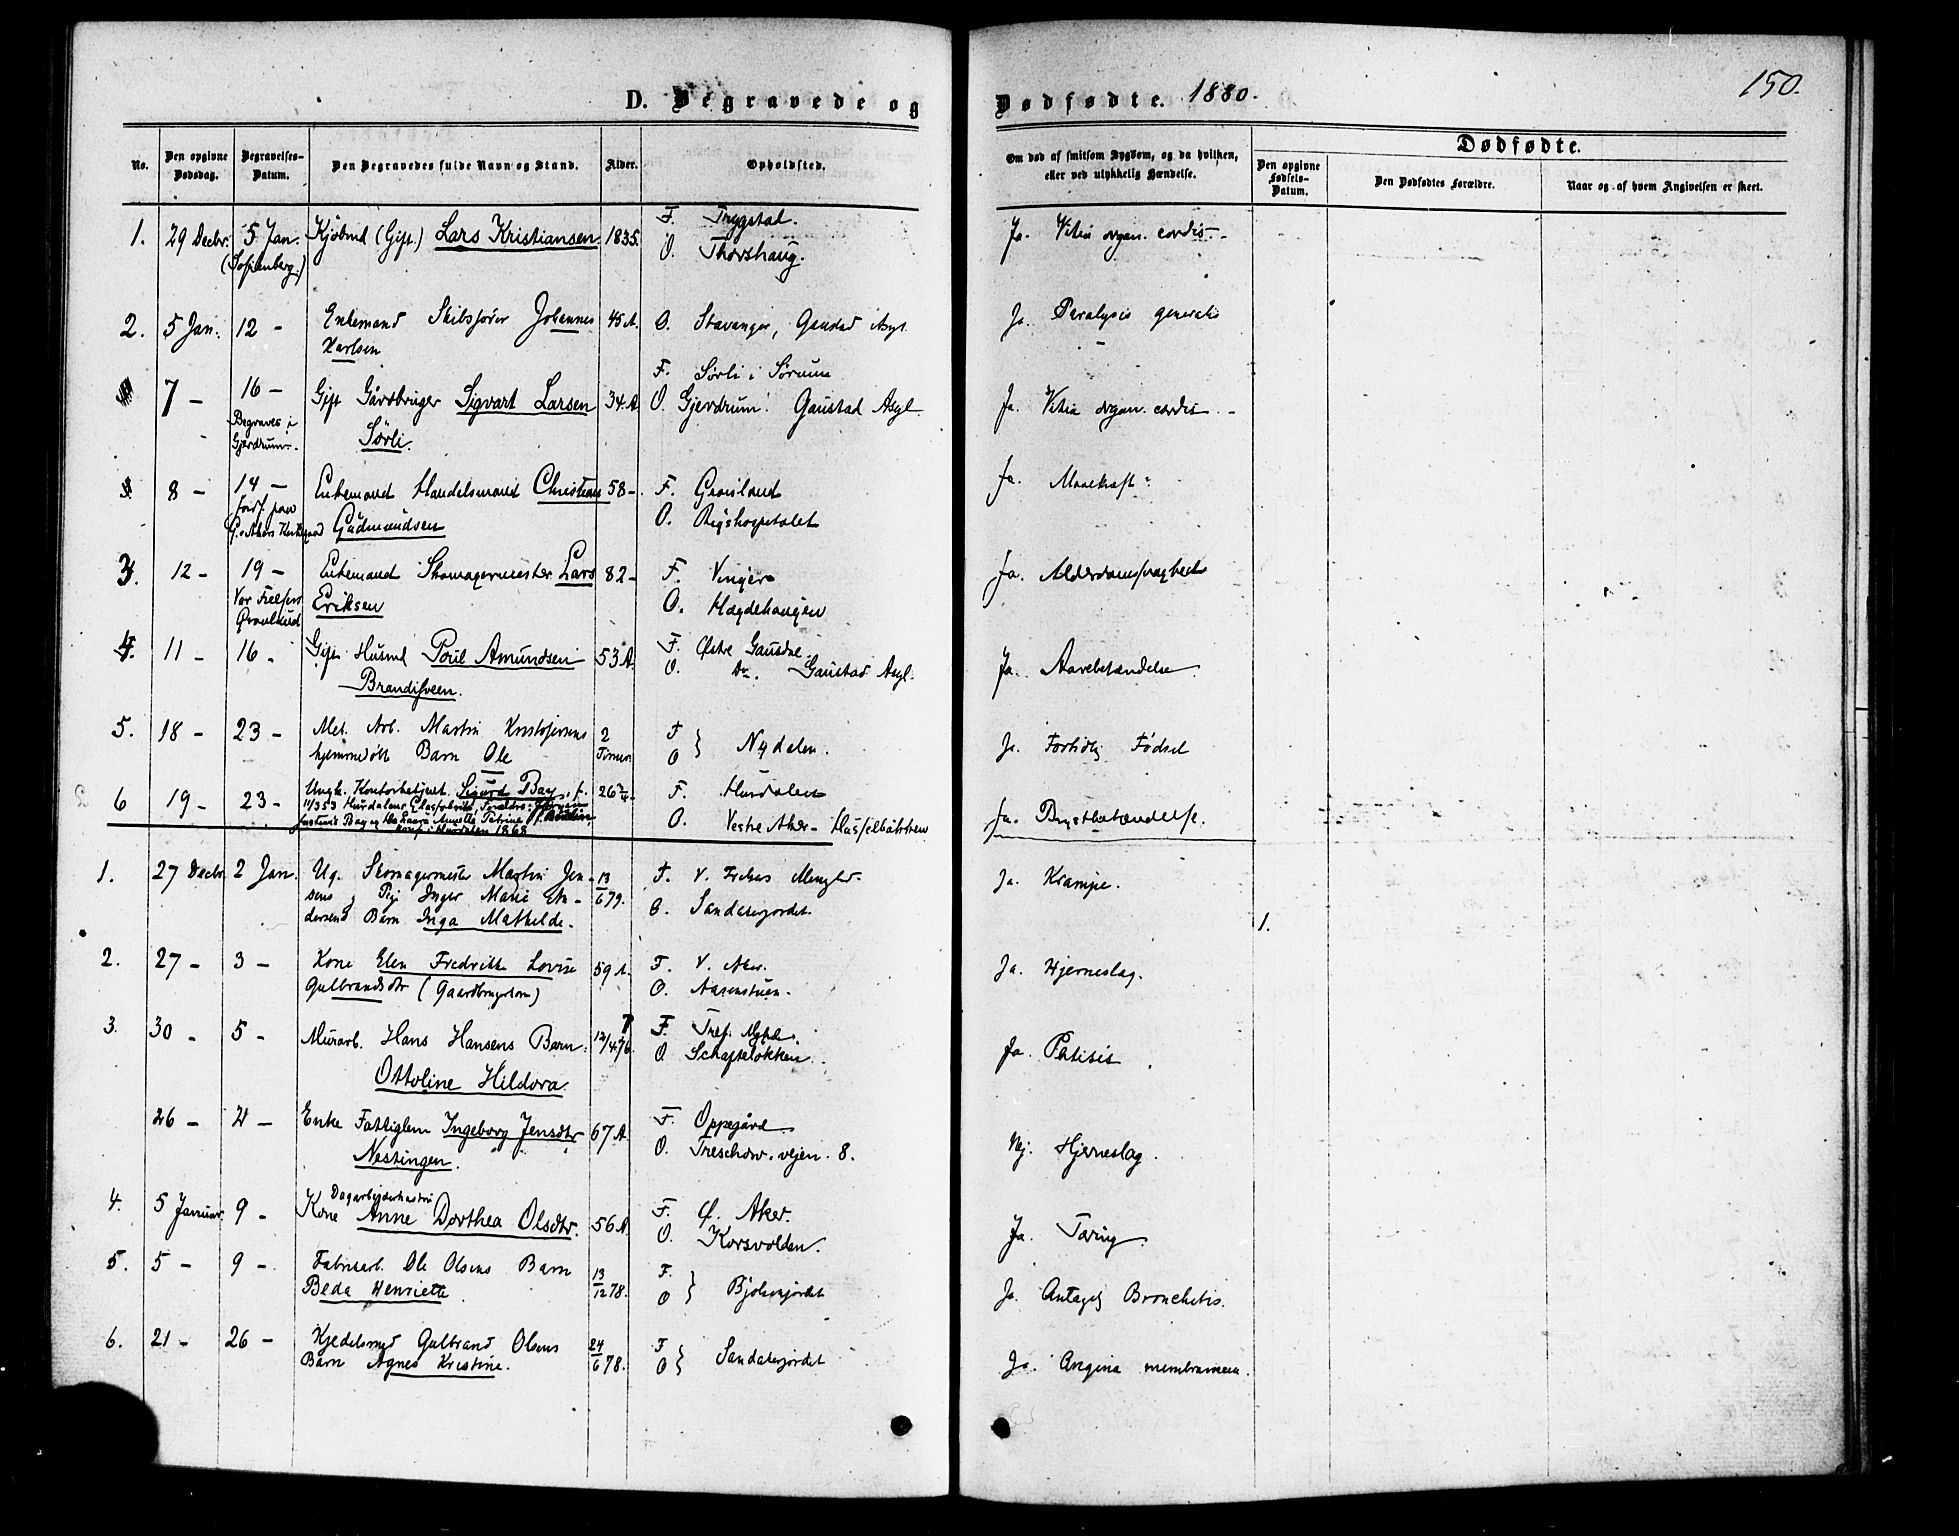 D. Begravede og Dødfødte. 1880. 150.
No. Den opgivne Dødsdag. Begravelses-Datum. Den Begravedes fulde Navn og Stand. Alder. Opholdssted. Om død af smitsom Sygdom, og da hvilken, eller ved ulykkelig Hændelse. Dødfødte. Den opgivne Fødsels-Datum. Den Dødfødtes Forældre. Naar og af hvem Angivelsen er skeet.
1. 29 Decbr. 5 Jan. Kjøbmd (Gift.) Lars Kristiansen 1835. F. Trygstad. Ja. Vitia organ. cordis
O. Thorshaug.
2. 5 Jan. 12 - Enkemand Skibsfører Johannes 45 A. O. Stavanger, Gaustad Asyl Ja. Paralysis generalis
Karlsen
7 - 16 - Gift Gårdbruger Sigvart Larsen 34 A. F. Sørli i Sørum
Begraves i Gjerdrum Sørli. O. Gjerdrum. Gaustad Asyl. Ja. Vitia organ. cordis
8 - 14 - Enkemand Handelsmand Christian 58 - F. Grønland Ja.
Gudmundsen O. Rigshospitalet
3. 12 - 19 - Enkemand Skomagermester Lars 82 - F. Vinger Ja. Alderdomssvaghed
Vor Frelsers Gravlund Eriksen O. Hægdehaugen
4. 11 - 16 - Gift Husmd Poul Amundsen 53 A. F. Østre Gausdal
Brandisveen. O. Do. Gaustad Asyl. Ja. Aarebetændelse
5. 18 - 23 - Mek. Arb. Martin Kristofersens 2 Timer F
hjemmedøbt Barn Ole O } Nydalen. Ja. Fortidlig Fødsel
6 19 - 23 - Ungk. Kontorbetjent Sigurd Bay, f. 26 F. Hurdalen
11/3 53 Hurdalens Glasfabrik, Forældre:
Bay og Laura Annette Petrine
Konf. i Hurdalen 1868 O. Vestre Aker - Hasselbakken Ja. Brystbetændelse.
1. 27 Decbr. 2 Jan. Ug. Skomagermester Martin Jen- 13/6 79. F. V. Frelsers Mengh. Ja. Krampe.
sens og Pige Inger Marie An- O. Sandakerjordet.
dersens Barn Inga Mathilde. 1.
2. 27 - 3 - Kone Elen Fredrikke Lovise 59 A. F. V. Aker. Ja. Hjerneslag.
Gulbrandsdtr (Gaardbrugerkone) O. Aasenstuen.
3. 30 - 5 - Murarb. Hans Hansens Barn 12/4 76. F. Tref. Mghd. Ja. Phtisis
Ottoline Hildora. O. Schafteløkken.
26 - 4 - Enke Fattiglem Ingeborg Jensdtr 67 A. F. Oppegård
Nestingen. O. Treschow. vejen 8. Nej. Hjerneslag.
Dagarbejderhustru
4. 5 Januar 9 - Kone Anne Dorthea Olsdtr. 56 A F. Ø. Aker. Ja. Tæring
O. Korsvolden.
5. 5 - 9 - Fabrikarb. Ole Olsens Barn 13/12 78. F.
Beda Henriette O } Bjølsenjordet Ja. Bronchitis.
6. 21 - 26 - Kjedelsmed Gulbrand Olsens 24/6 78. F
Barn Agnes Kristine. O } Sandakerjordet Ja. Angina membranacea.